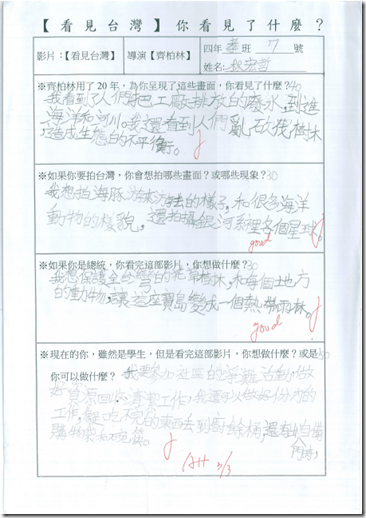 【看見台灣】你看見了什麼？
影片：【看見台灣】 導演【齊柏林】 四年 班 7 號
姓名：
※齊柏林用了 20 年，為你呈現了這些畫面，你看見了什麼？
我看到了人們把工廠排放的廢水，到進
海洋和河川。我還看到人們亂砍筏樹木
，造成生態的不平衡。
※如果你要拍台灣，你會想拍哪些畫面？或哪些現象？
我想拍海豚 的樣子，和很多海洋
動物的樣貌，還拍攝銀河系裡各個星球。
good
※如果你是總統，你看完這部影片，你想做什麼？
我想保護 的花草樹木，和每個地方
的動物，讓這座寶島變成一個熱帶雨林。
good
※現在的你，雖然是學生，但是看完這部影片，你想做什麼？或是
你可以做什麼？ 我要參加社區的淨灘活動，做
好資源回收、清潔工作，我還可以做好份內的
工作，把吃不完的東西去到廚餘桶，還有自備
購物袋和環保